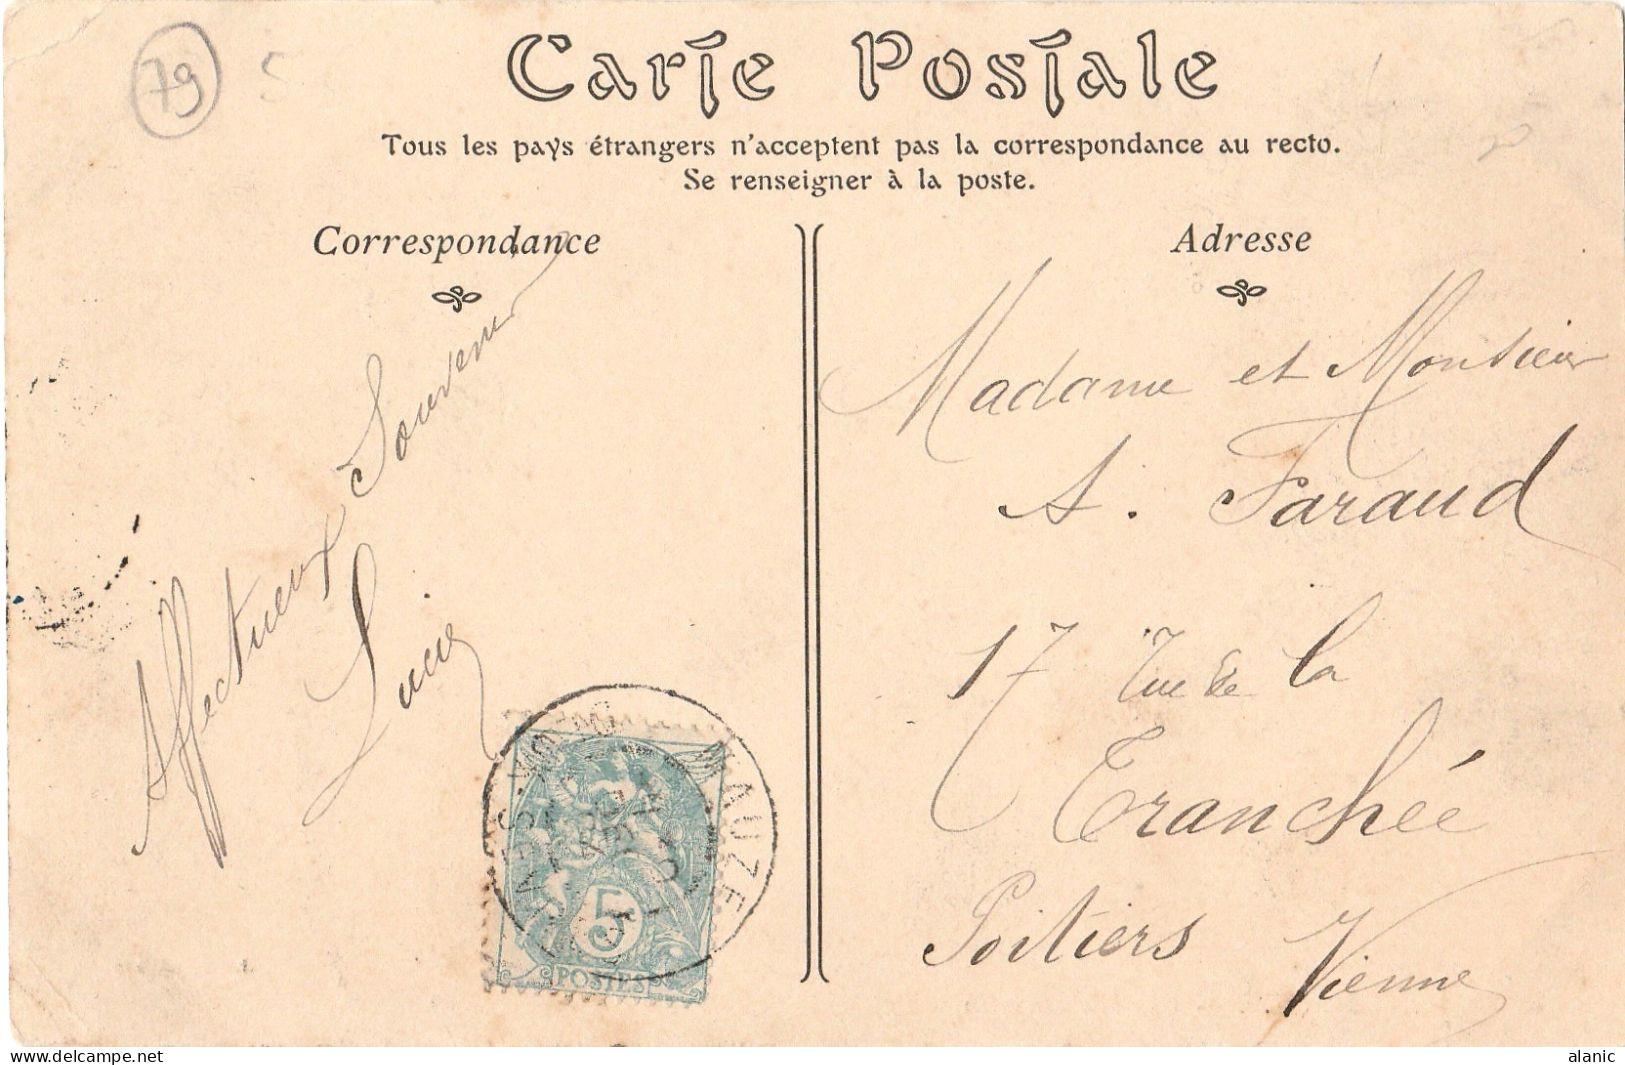 79
Carte Postale
Tous les pays étrangers n'acceptent pas la correspondance au recto.
Se renseigner à la poste.
Correspondance
Adresse
Affectueux Souvenir
Lucie
Madame et Monsieur
A. Faraud
17 rue de la
Tranchée
Poitiers
Vienne
MAUZE
5
POSTES
alanic